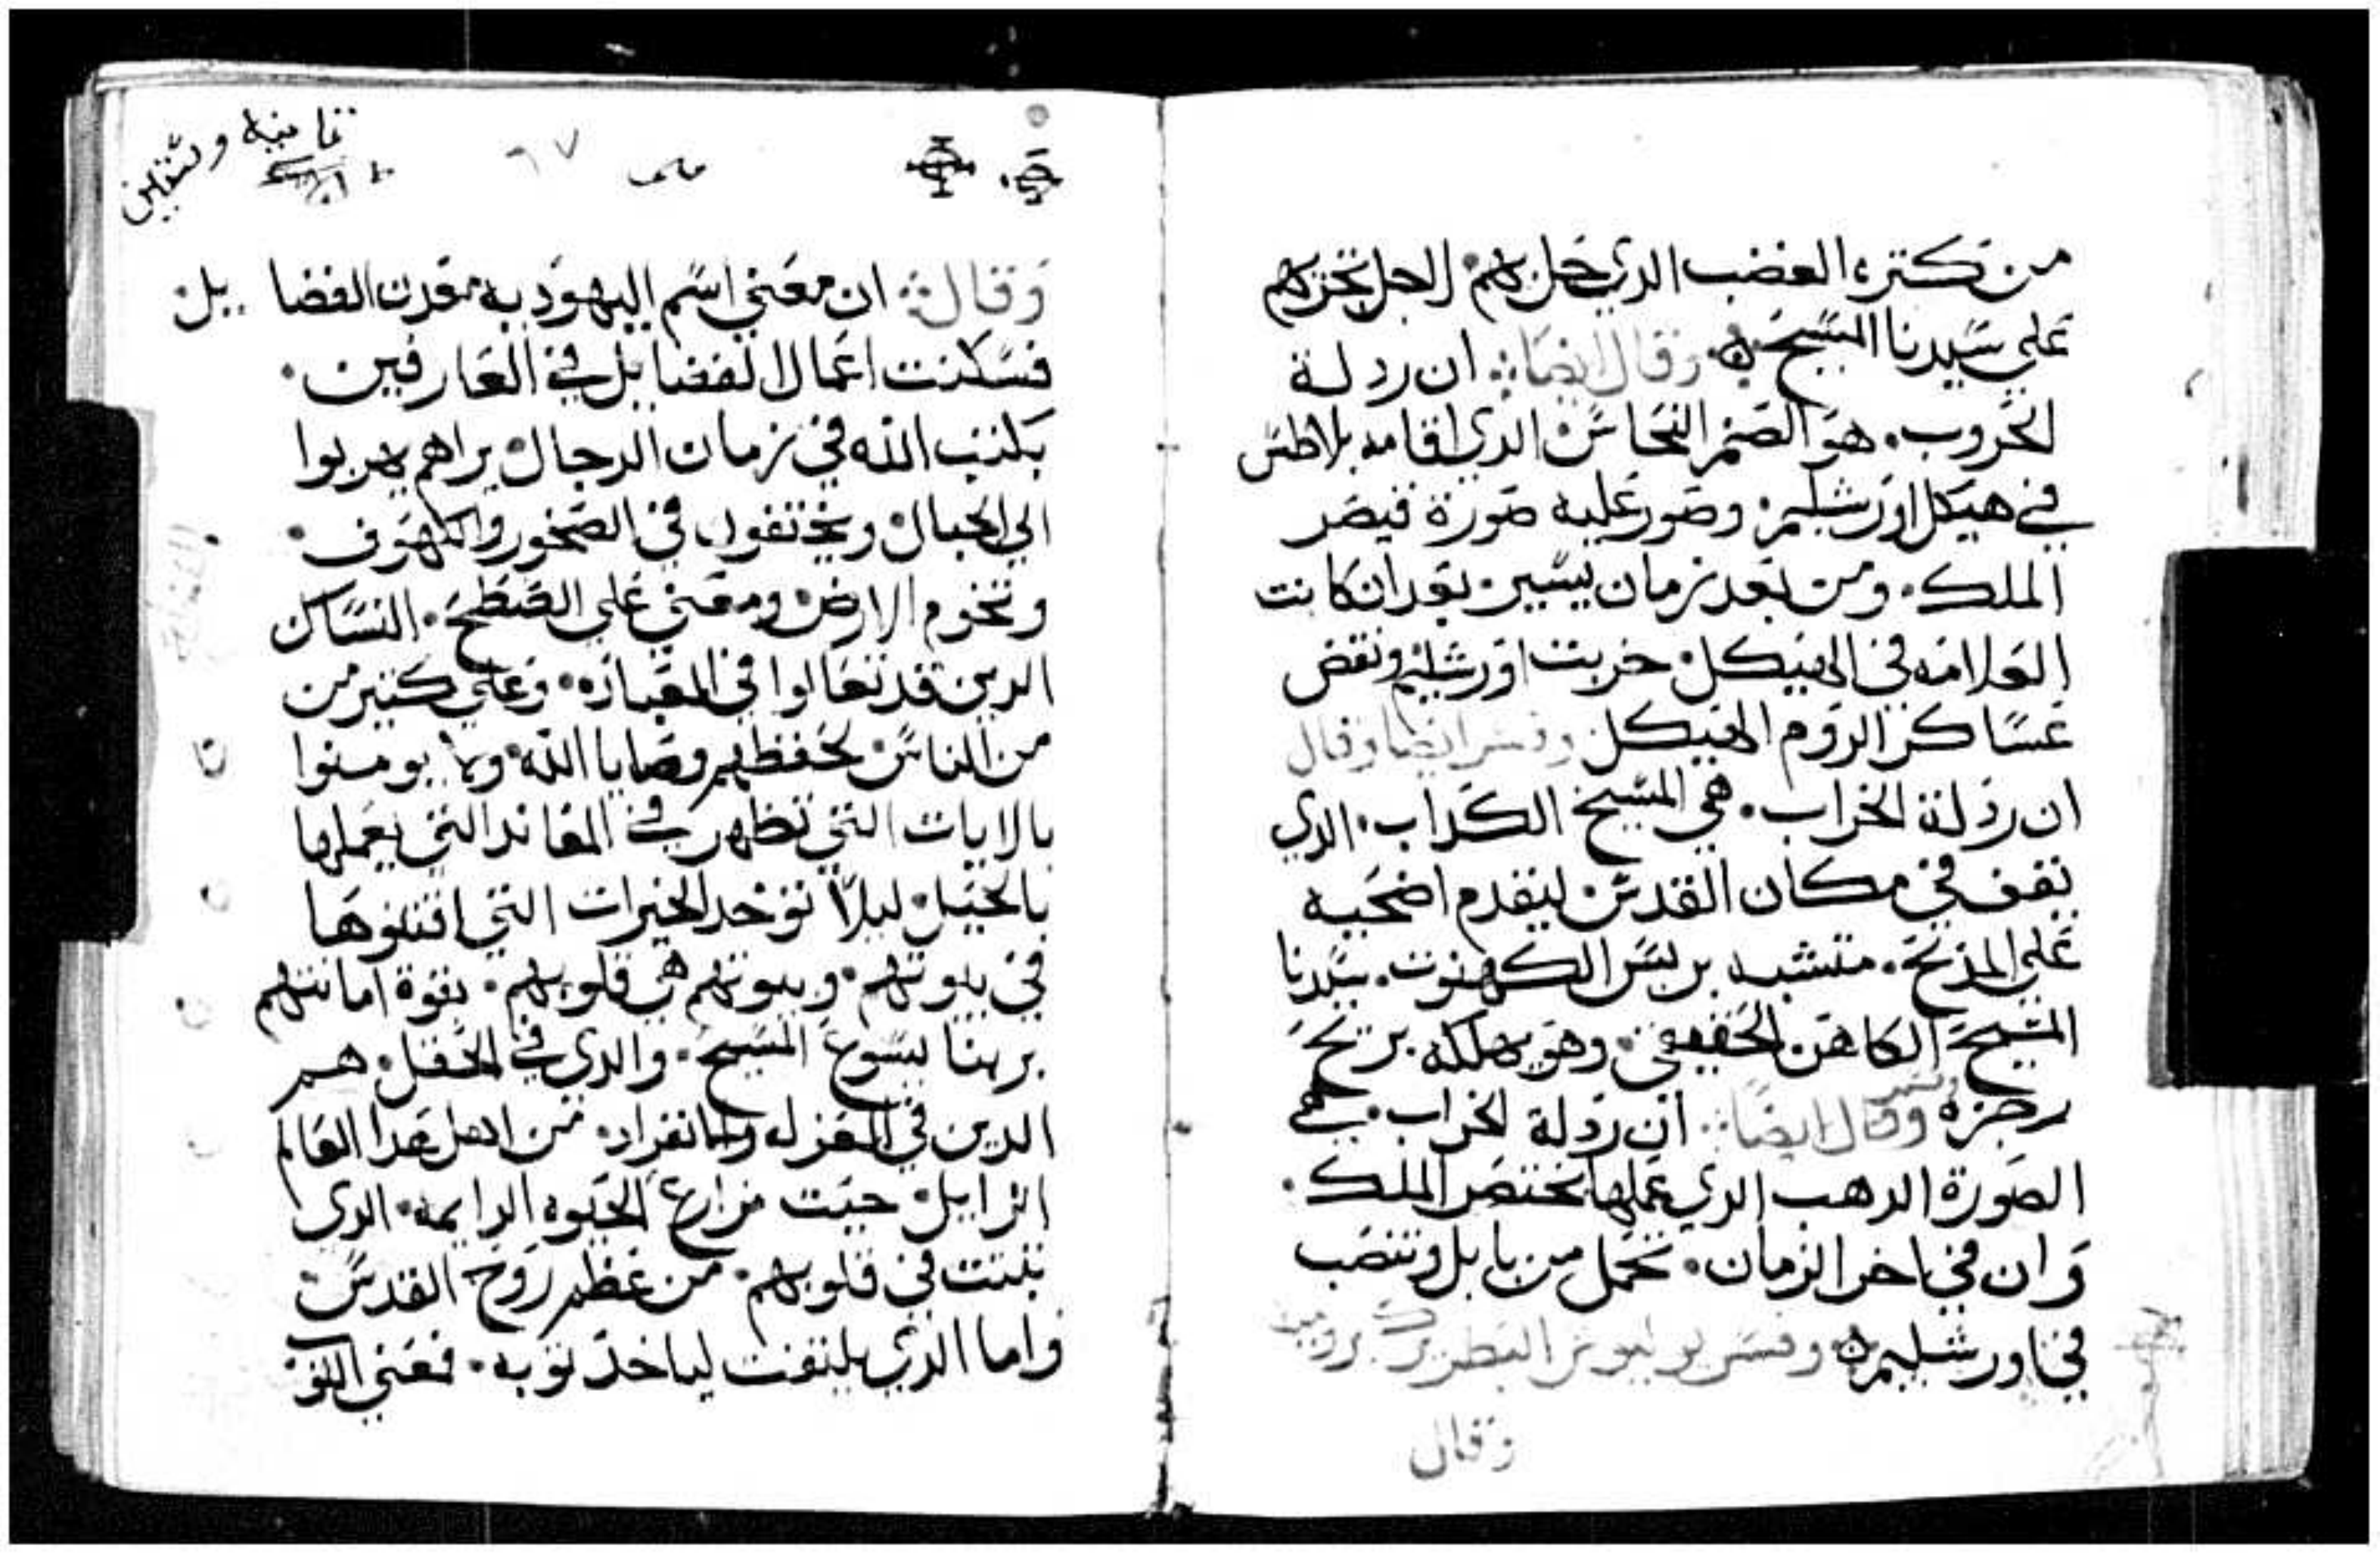 من كتره الغضب الدي حل بهم لاجل تحزبهم
علي سيدنا المسيح وقال ايضا ان ردلة
الخروب هو الصنم النحاس الدي اقامه بلاطس
في هيكل اورشليم وصور عليه صورة قيصر
الملك ومن بعد زمان يسير بعد ان كانت
العلامه في الهيكل خربت اورشليم ونقض
عساكر الروم الهيكل وفسر ايضا وقال
ان ردلة الخراب هي المسيح الكداب الدي
يقف في مكان القدس ليقدم اضحيه
علي المذبح متشبه بريس الكهنوت سيدنا
المسيح الكاهن الحقيقي وهو يهلكه بريح
رجزه وفسر وقال ايضا ان ردلة الخراب هي
الصورة الدهب الدي عملها بختنصر الملك
وان في اخر الزمان تحمل من بابل وتنصب
في اورشليم وفسر بوليوس البطريرك برومية
وقال
تمانيه وستين
٦٧
وقال ان معني اسم اليهوديه معدن الفضا يل
فسكنت اعمال الفضايل في العارفين
بكنب الله في زمان الدجال يراهم يهربوا
الي الجبال ويختفوا في الصخور والكهوف
وتخوم الارض ومعني علي السطح النساك
الدين قد تعالوا في العباده وعلي كتير من
من الناس بحفظهم وصايا الله ولا يومنوا
بالايات التي تظهر في المعاند التي يعملها
بالحيل ليلا توخد الخيرات التي اقتنوها
في بيوتهم وبيوتهم هي قلوبهم بقوة امانتهم
بربنا يسوع المسيح والدي في الحقل هم
الدين في العزله والانفراد من اهل هدا العالم
الزايل حيت مزارع الحيوه الدايمه الدي
نبتت في قلوبهم من عظم روح القدس
واما الدي يلتفت لياخد توبه فعني التو